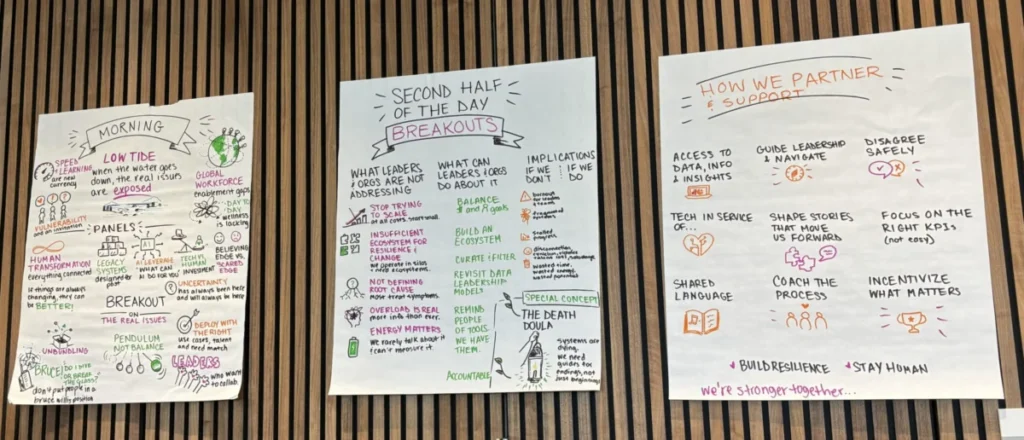 MORNING
SPEED
LEARNING
are new
currency
LOW TIDE
when the water goes
down, the real issues
are exposed
GLOBAL
WORKFORCE
enablement gaps
VULNERABILITY
as an invitation
DAY TO
DAY
wellness
is lacking
PANELS
AI
HUMAN
TRANSFORMATION
everything connected
LEGACY
SYSTEMS
designed for
past
AI LEVERAGE
"WHAT CAN
AI DO FOR YOU"
TECH VS.
HUMAN
INVESTMENT
BELIEVING
EDGE VS.
SCARED
EDGE
UNCERTAINTY
has always been here
and will always be here
if things are always
changing, they can
be BETTER!
BREAKOUT
ON
THE REAL ISSUES
PENDULUM
NOT BALANCE
DEPLOY WITH
THE RIGHT
use cases, talent
and need match
UNBUNDLING
BRUCE!
DO I NEED
OR BREAK
THE GLASS?
don't put people in a
bruce willis position
LEADERS
who want
to collab
SECOND HALF
OF THE DAY
BREAKOUTS
WHAT LEADERS
& ORGS ARE NOT
ADDRESSING
STOP TRYING
TO SCALE
at all costs. start small.
INSUFFICIENT
ECOSYSTEM FOR
RESILIENCE &
CHANGE
we operate in silos
& need ecosystems.
NOT DEFINING
ROOT CAUSE
most treat symptoms.
OVERLOAD IS REAL
more info than ever.
ENERGY MATTERS
we rarely talk about it
can't measure it.
WHAT CAN
LEADERS & ORGS
DO ABOUT IT
BALANCE
# and R goals
BUILD AN
ECOSYSTEM
CURATE & FILTER
REVISIT DATA
LEADERSHIP
MODELS
REMIND
PEOPLE
OF TOOLS
WE HAVE
THEM.
ACCOUNTABLE
IMPLICATIONS
IF WE
DON'T
IF WE
DO
burnout
for leaders
& teams
fragmented
systems
stalled
progress
disconnection
wasted time,
wasted energy,
wasted potential
SPECIAL CONCEPT
THE DEATH
DOULA
systems are
dying.
we need
guides for
endings, not
just beginnings
HOW WE PARTNER
& SUPPORT
ACCESS TO
DATA, INFO
& INSIGHTS
GUIDE LEADERSHIP
& NAVIGATE
DISAGREE
SAFELY
TECH IN SERVICE
OF...
SHAPE STORIES
THAT MOVE
US FORWARD
FOCUS ON THE
RIGHT KPIs
(not easy)
SHARED
LANGUAGE
COACH THE
PROCESS
INCENTIVIZE
WHAT MATTERS
BUILD RESILIENCE
STAY HUMAN
we're stronger together...